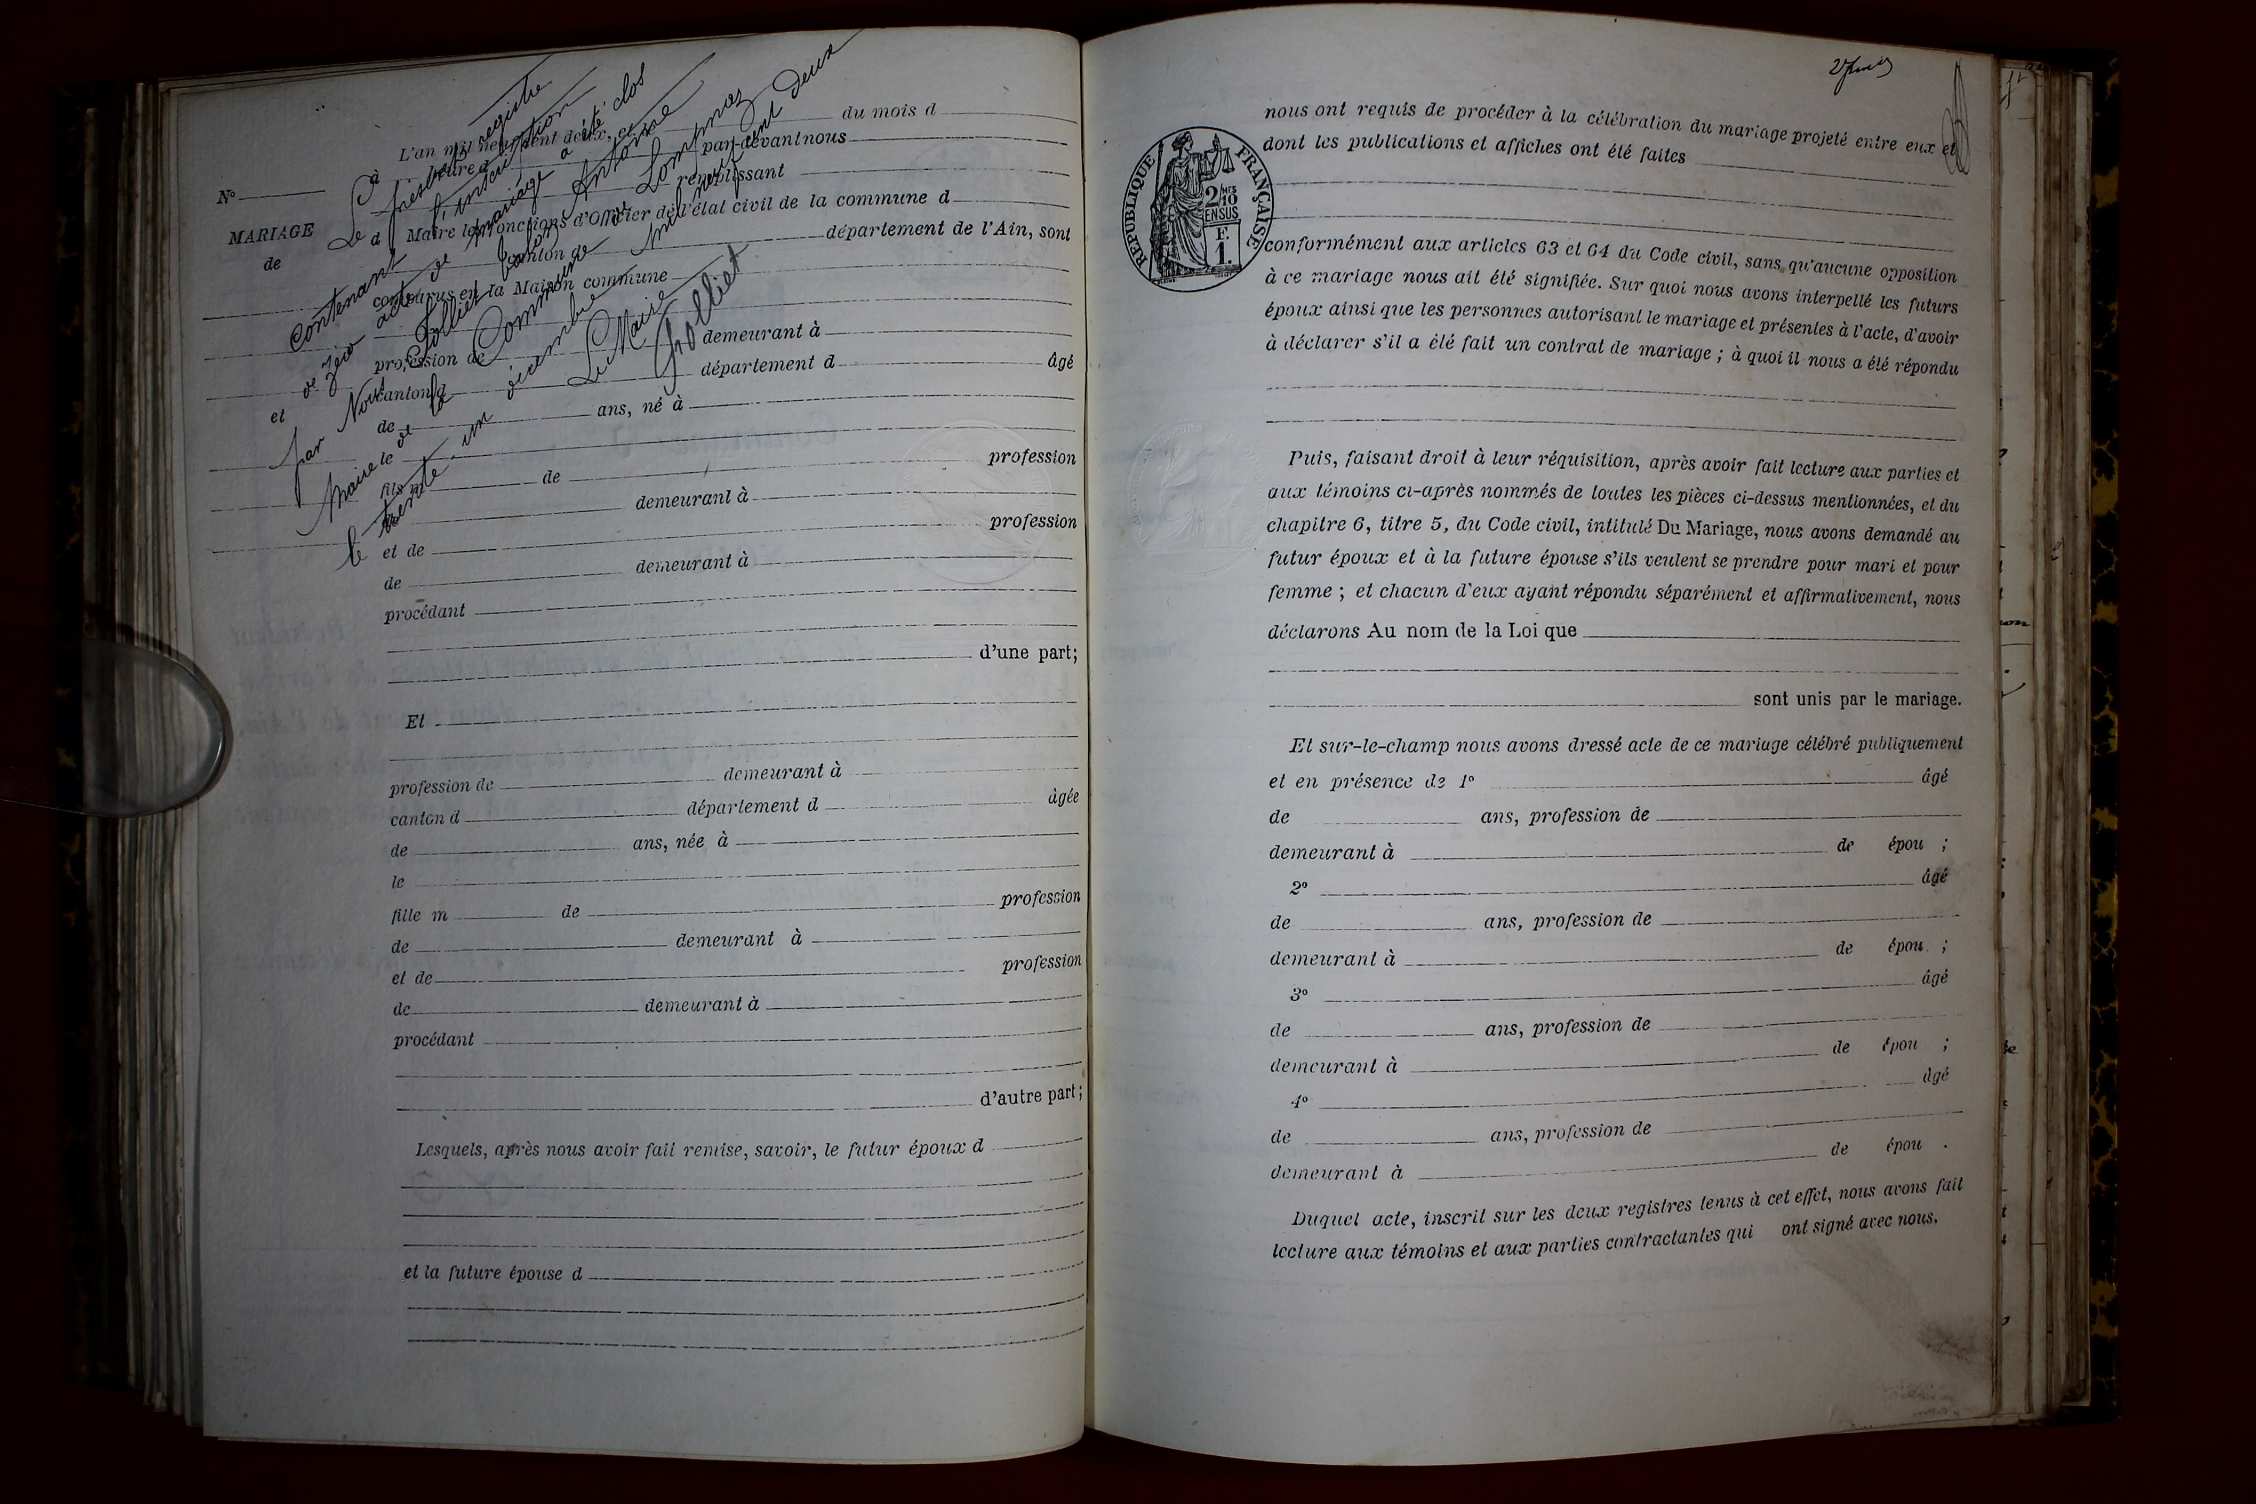 N°
MARIAGE
de
et
L'an mil neuf cent deux, et
du mois d
à heure
par-devant nous
remplissant
d Maire les fonctions d'Officier de l'état civil de la commune d
canton d département de l'Ain, sont
comparus en la Maison commune
profession de demeurant à
canton d département d âgé
de ans, né à
le
fils m de profession
demeurant à
et de profession
de demeurant à
procédant
d'une part;
Et
profession de demeurant à
canton d département d âgée
de ans, née à
le
fille m de profession
de demeurant à
et de profession
de demeurant à
procédant
d'autre part;
Lesquels, après nous avoir fait remise, savoir, le futur époux d
et la future épouse d
Le présent registre
contenant l'inscription
de Zéro acte de Mariage a été clos
par Nous Folliet Antoine
Maire de la Commune de Lompnaz
le trente-un décembre mil neuf cent deux
Le Maire
Folliet
nous ont requis de procéder à la célébration du mariage projeté entre eux et
dont les publications et affiches ont été faites
RÉPUBLIQUE FRANÇAISE
2/10
EN SUS
F.
1.
conformément aux articles 63 et 64 du Code civil, sans qu'aucune opposition
à ce mariage nous ait été signifiée. Sur quoi nous avons interpellé les futurs
époux ainsi que les personnes autorisant le mariage et présentes à l'acte, d'avoir
à déclarer s'il a été fait un contrat de mariage ; à quoi il nous a été répondu
Puis, faisant droit à leur réquisition, après avoir fait lecture aux parties et
aux témoins ci-après nommés de toutes les pièces ci-dessus mentionnées, et du
chapitre 6, titre 5, du Code civil, intitulé Du Mariage, nous avons demandé au
futur époux et à la future épouse s'ils veulent se prendre pour mari et pour
femme ; et chacun d'eux ayant répondu séparément et affirmativement, nous
déclarons Au nom de la Loi que
sont unis par le mariage.
Et sur-le-champ nous avons dressé acte de ce mariage célébré publiquement
et en présence de 1° âgé
de ans, profession de
demeurant à de épou ;
2° âgé
de ans, profession de
demeurant à de épou ;
3° âgé
de ans, profession de
demeurant à de épou ;
4° âgé
de ans, profession de
demeurant à de épou .
Duquel acte, inscrit sur les deux registres tenus à cet effet, nous avons fait
lecture aux témoins et aux parties contractantes qui ont signé avec nous.